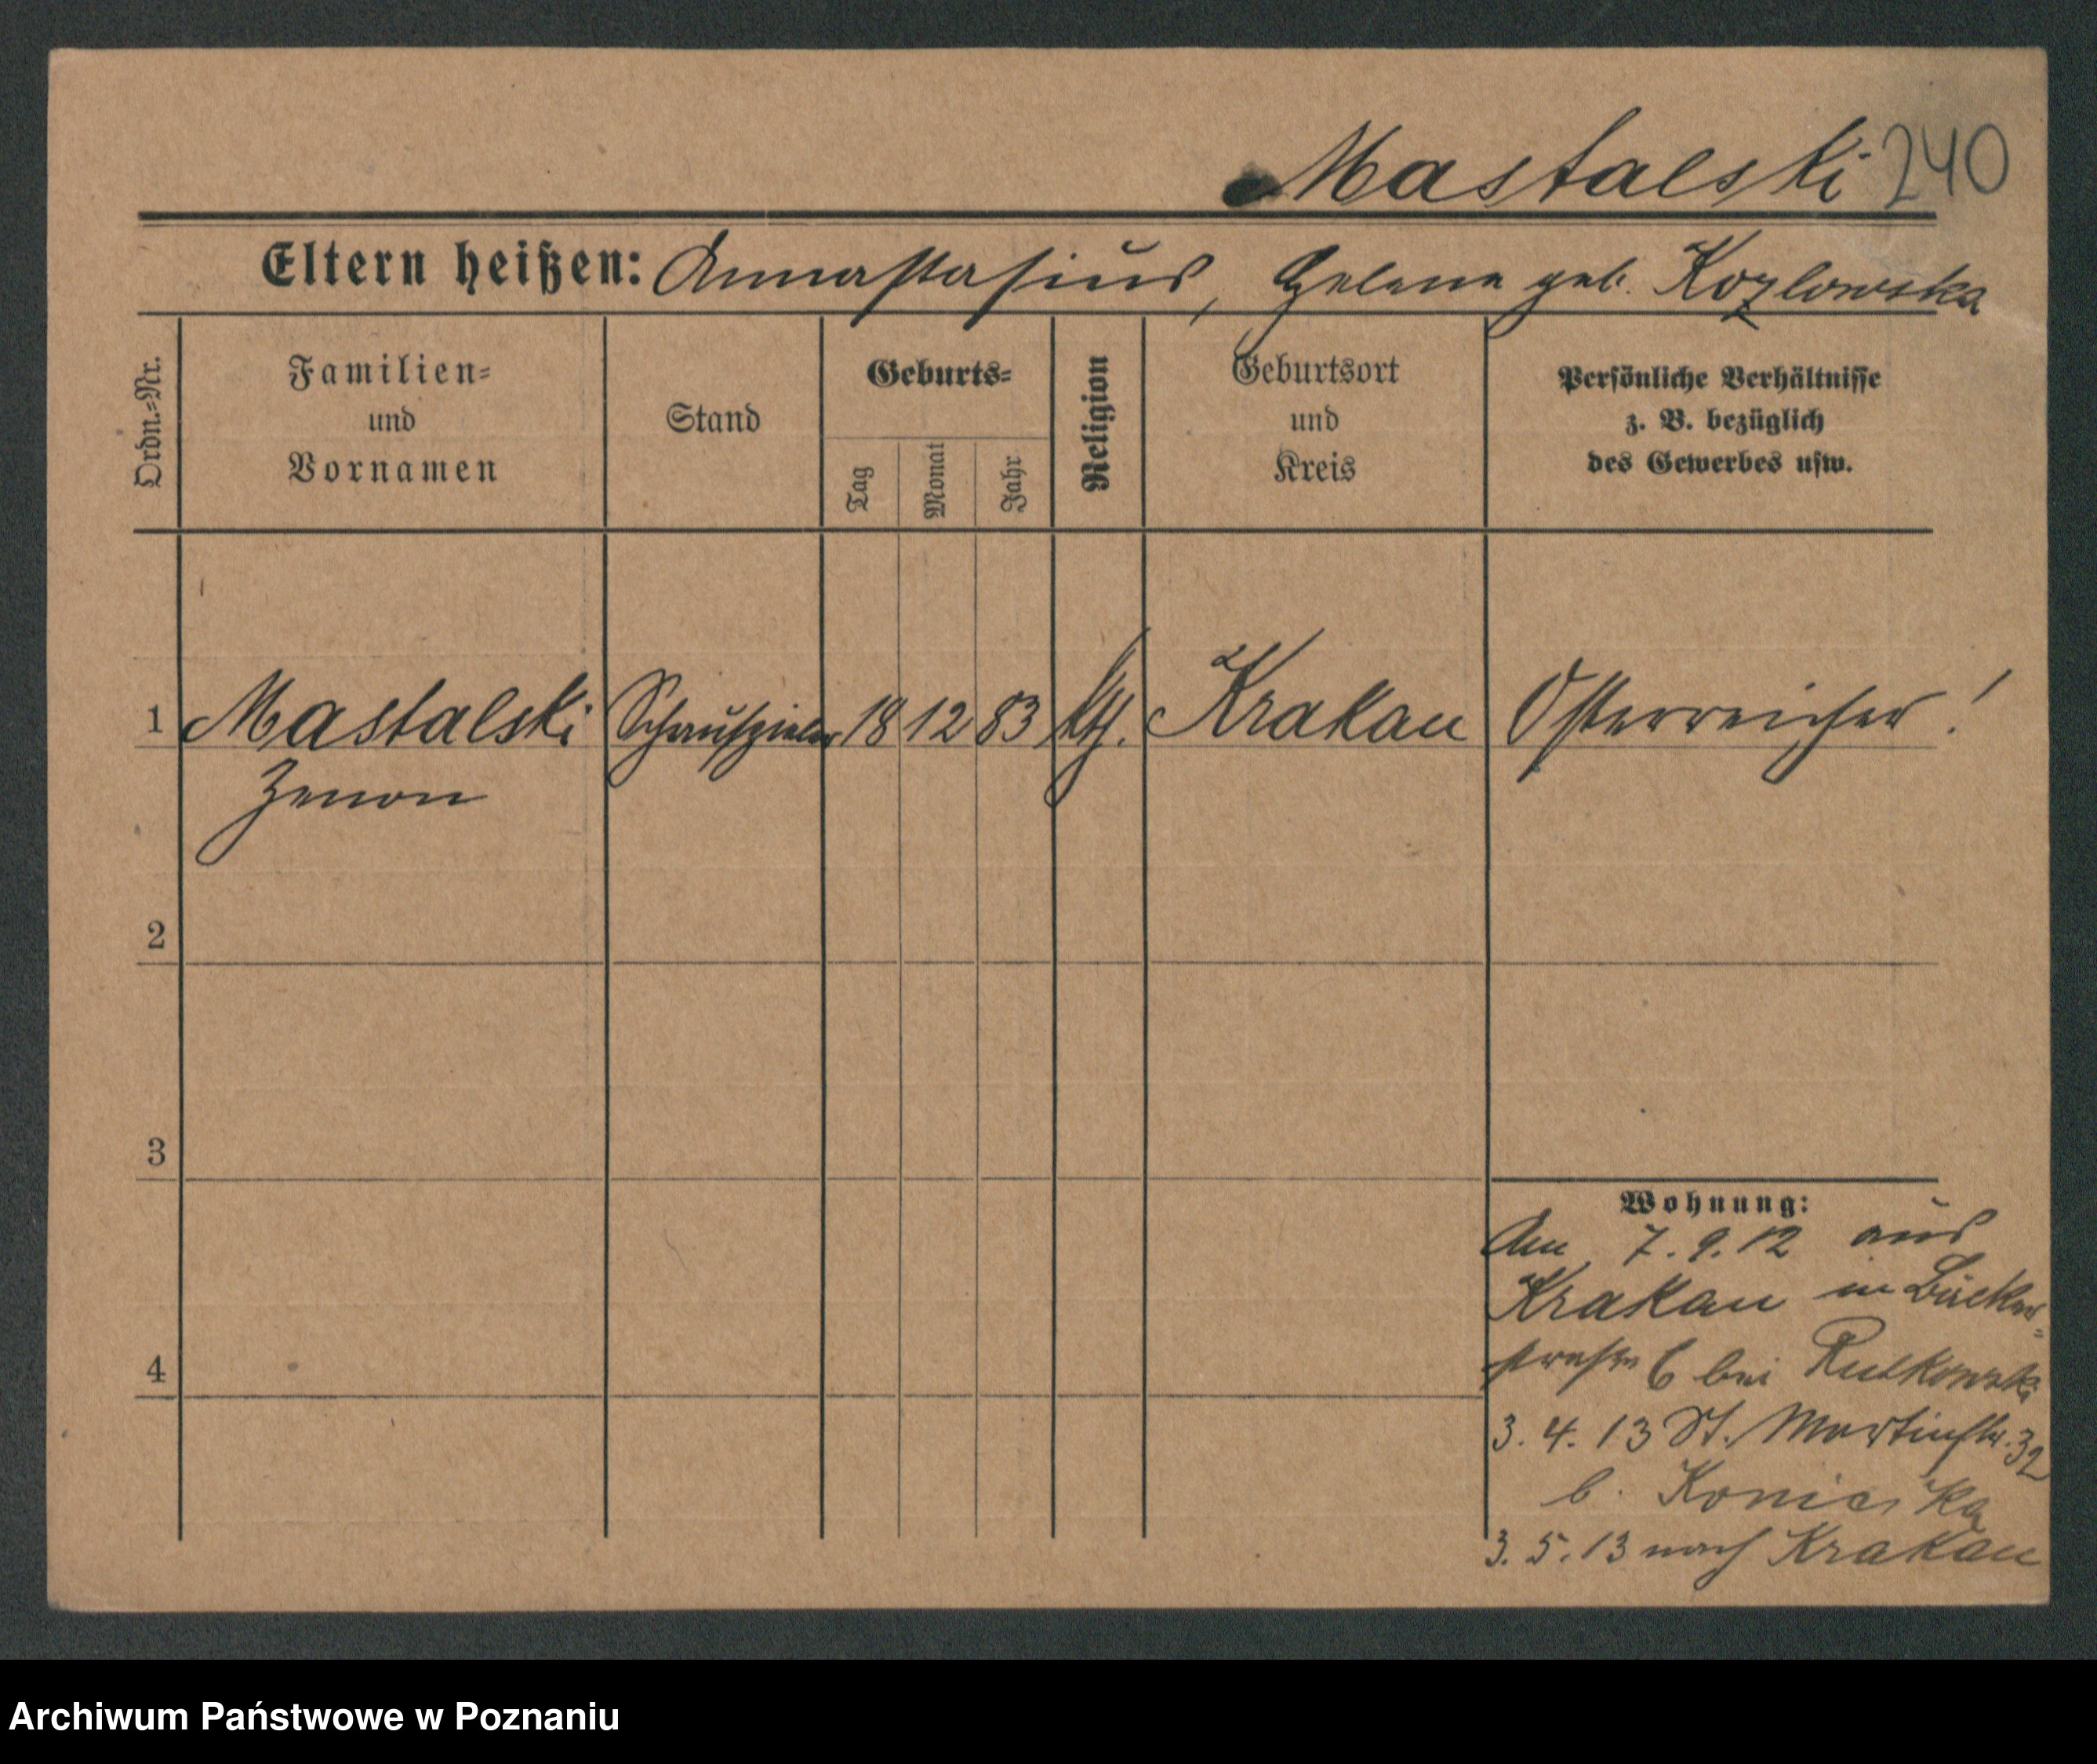 Mastalski 240
Eltern heißen: Annastasius, Helene geb. Kozlowska
Ordn.-Nr.
Familien-
und
Vornamen
Stand
Geburts-
Tag
Monat
Jahr
Religion
Geburtsort
und
Kreis
Persönliche Verhältnisse
z. B. bezüglich
des Gewerbes usw.
1 Mastalski Schauspieler 18 12 83 kth. Krakau Österreicher!
Zenon
2
3
4
Wohnung:
Am 7.9.12 aus
Krakau in Bäcker-
straße 6 bei Rutkowski
3.4.13 St. Martinstr. 32
b.
3.5.13 nach Krakau
Archiwum Państwowe w Poznaniu